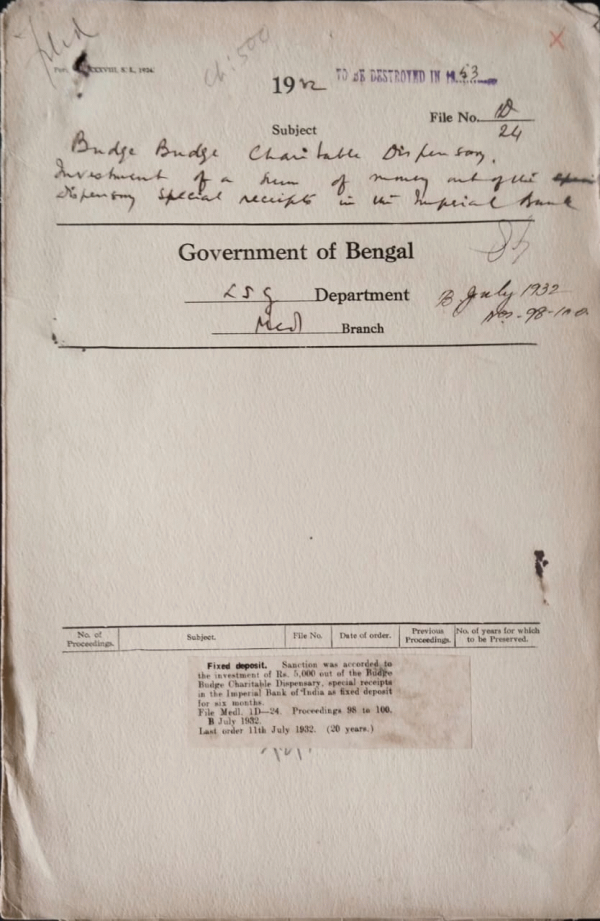 filed
Ch: 500
XXXVIII, S. L., 1926.
1932 TO BE DESTROYED IN 1953
File No. 1D/24
Subject
Budge Budge Charitable Dispensary.
Investment of a sum of money out of the
Dispensary special receipts in the Imperial Bank
Government of Bengal
LSG Department B July 1932
Med Branch Nos-98-100
No. of Proceedings. Subject. File No. Date of order. Previous Proceedings. No. of years for which to be Preserved.
Fixed deposit. Sanction was accorded to
the investment of Rs. 5,000 out of the Budge
Budge Charitable Dispensary, special receipts
in the Imperial Bank of India as fixed deposit
for six months.
File Medl. 1D—24. Proceedings 98 to 100.
B July 1932.
Last order 11th July 1932. (20 years.)